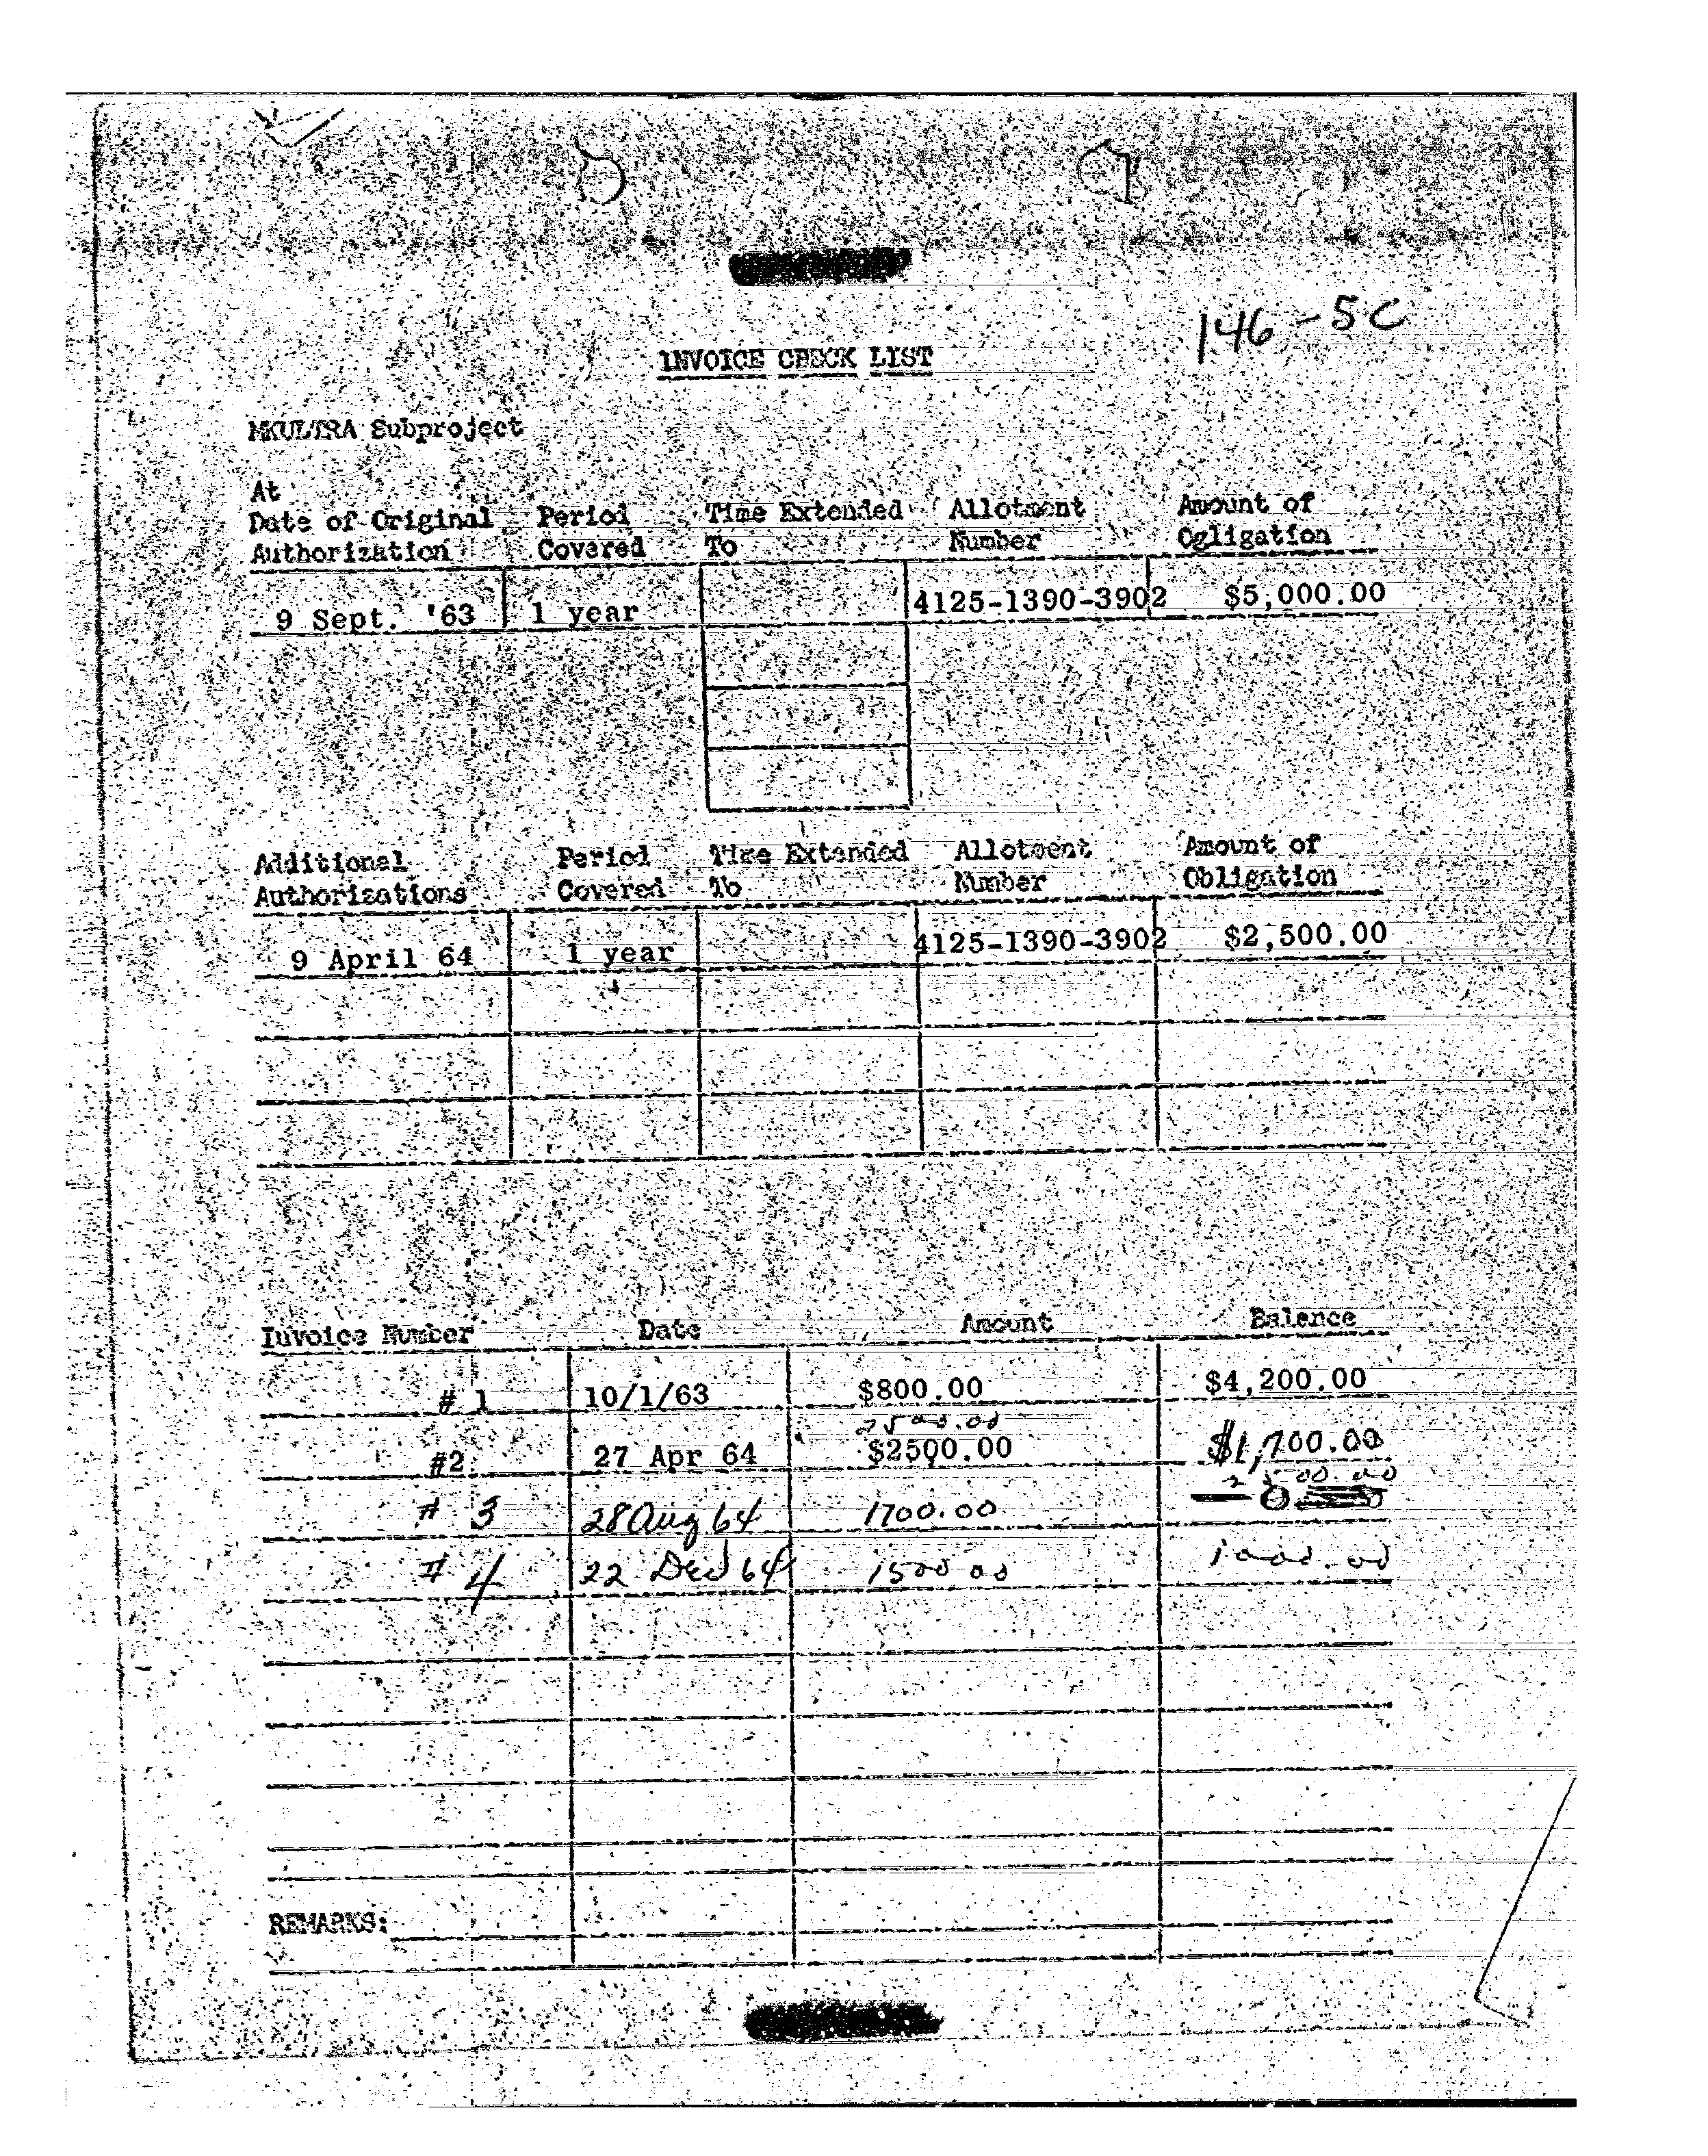 146-5C
INVOICE CHECK LIST
MKULTRA Subproject
At
Date of Original Authorization Period Covered Time Extended To Allotment Number Amount of Ogligation
9 Sept. '63 1 year 4125-1390-3902 $5,000.00
Additional Authorizations Period Covered Time Extended To Allotment Number Amount of Obligation
9 April 64 1 year 4125-1390-3902 $2,500.00
Invoice Number Date Amount Balance
# 1 10/1/63 $800.00 $4,200.00
2500.00
#2 27 Apr 64 $2500.00 $1,700.00
2500.00
# 3 28 Aug 64 1700.00 0
# 4 22 Dec 64 1500 00 1000.00
REMARKS: